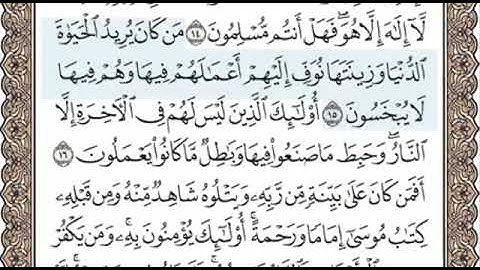 لَّآ إِلَٰهَ إِلَّا هُوَۖ فَهَلْ أَنتُم مُّسْلِمُونَ ١٤ مَن كَانَ يُرِيدُ ٱلْحَيَوٰةَ
ٱلدُّنْيَا وَزِينَتَهَا نُوَفِّ إِلَيْهِمْ أَعْمَٰلَهُمْ فِيهَا وَهُمْ فِيهَا
لَا يُبْخَسُونَ ١٥ أُو۟لَٰٓئِكَ ٱلَّذِينَ لَيْسَ لَهُمْ فِى ٱلْءَاخِرَةِ إِلَّا
ٱلنَّارُۖ وَحَبِطَ مَا صَنَعُوا۟ فِيهَا وَبَٰطِلٌ مَّا كَانُوا۟ يَعْمَلُونَ ١٦
أَفَمَن كَانَ عَلَىٰ بَيِّنَةٍ مِّن رَّبِّهِۦ وَيَتْلُوهُ شَاهِدٌ مِّنْهُ وَمِن قَبْلِهِۦ
كِتَٰبُ مُوسَىٰٓ إِمَامًا وَرَحْمَةًۚ أُو۟لَٰٓئِكَ يُؤْمِنُونَ بِهِۦۚ وَمَن يَكْفُرْ